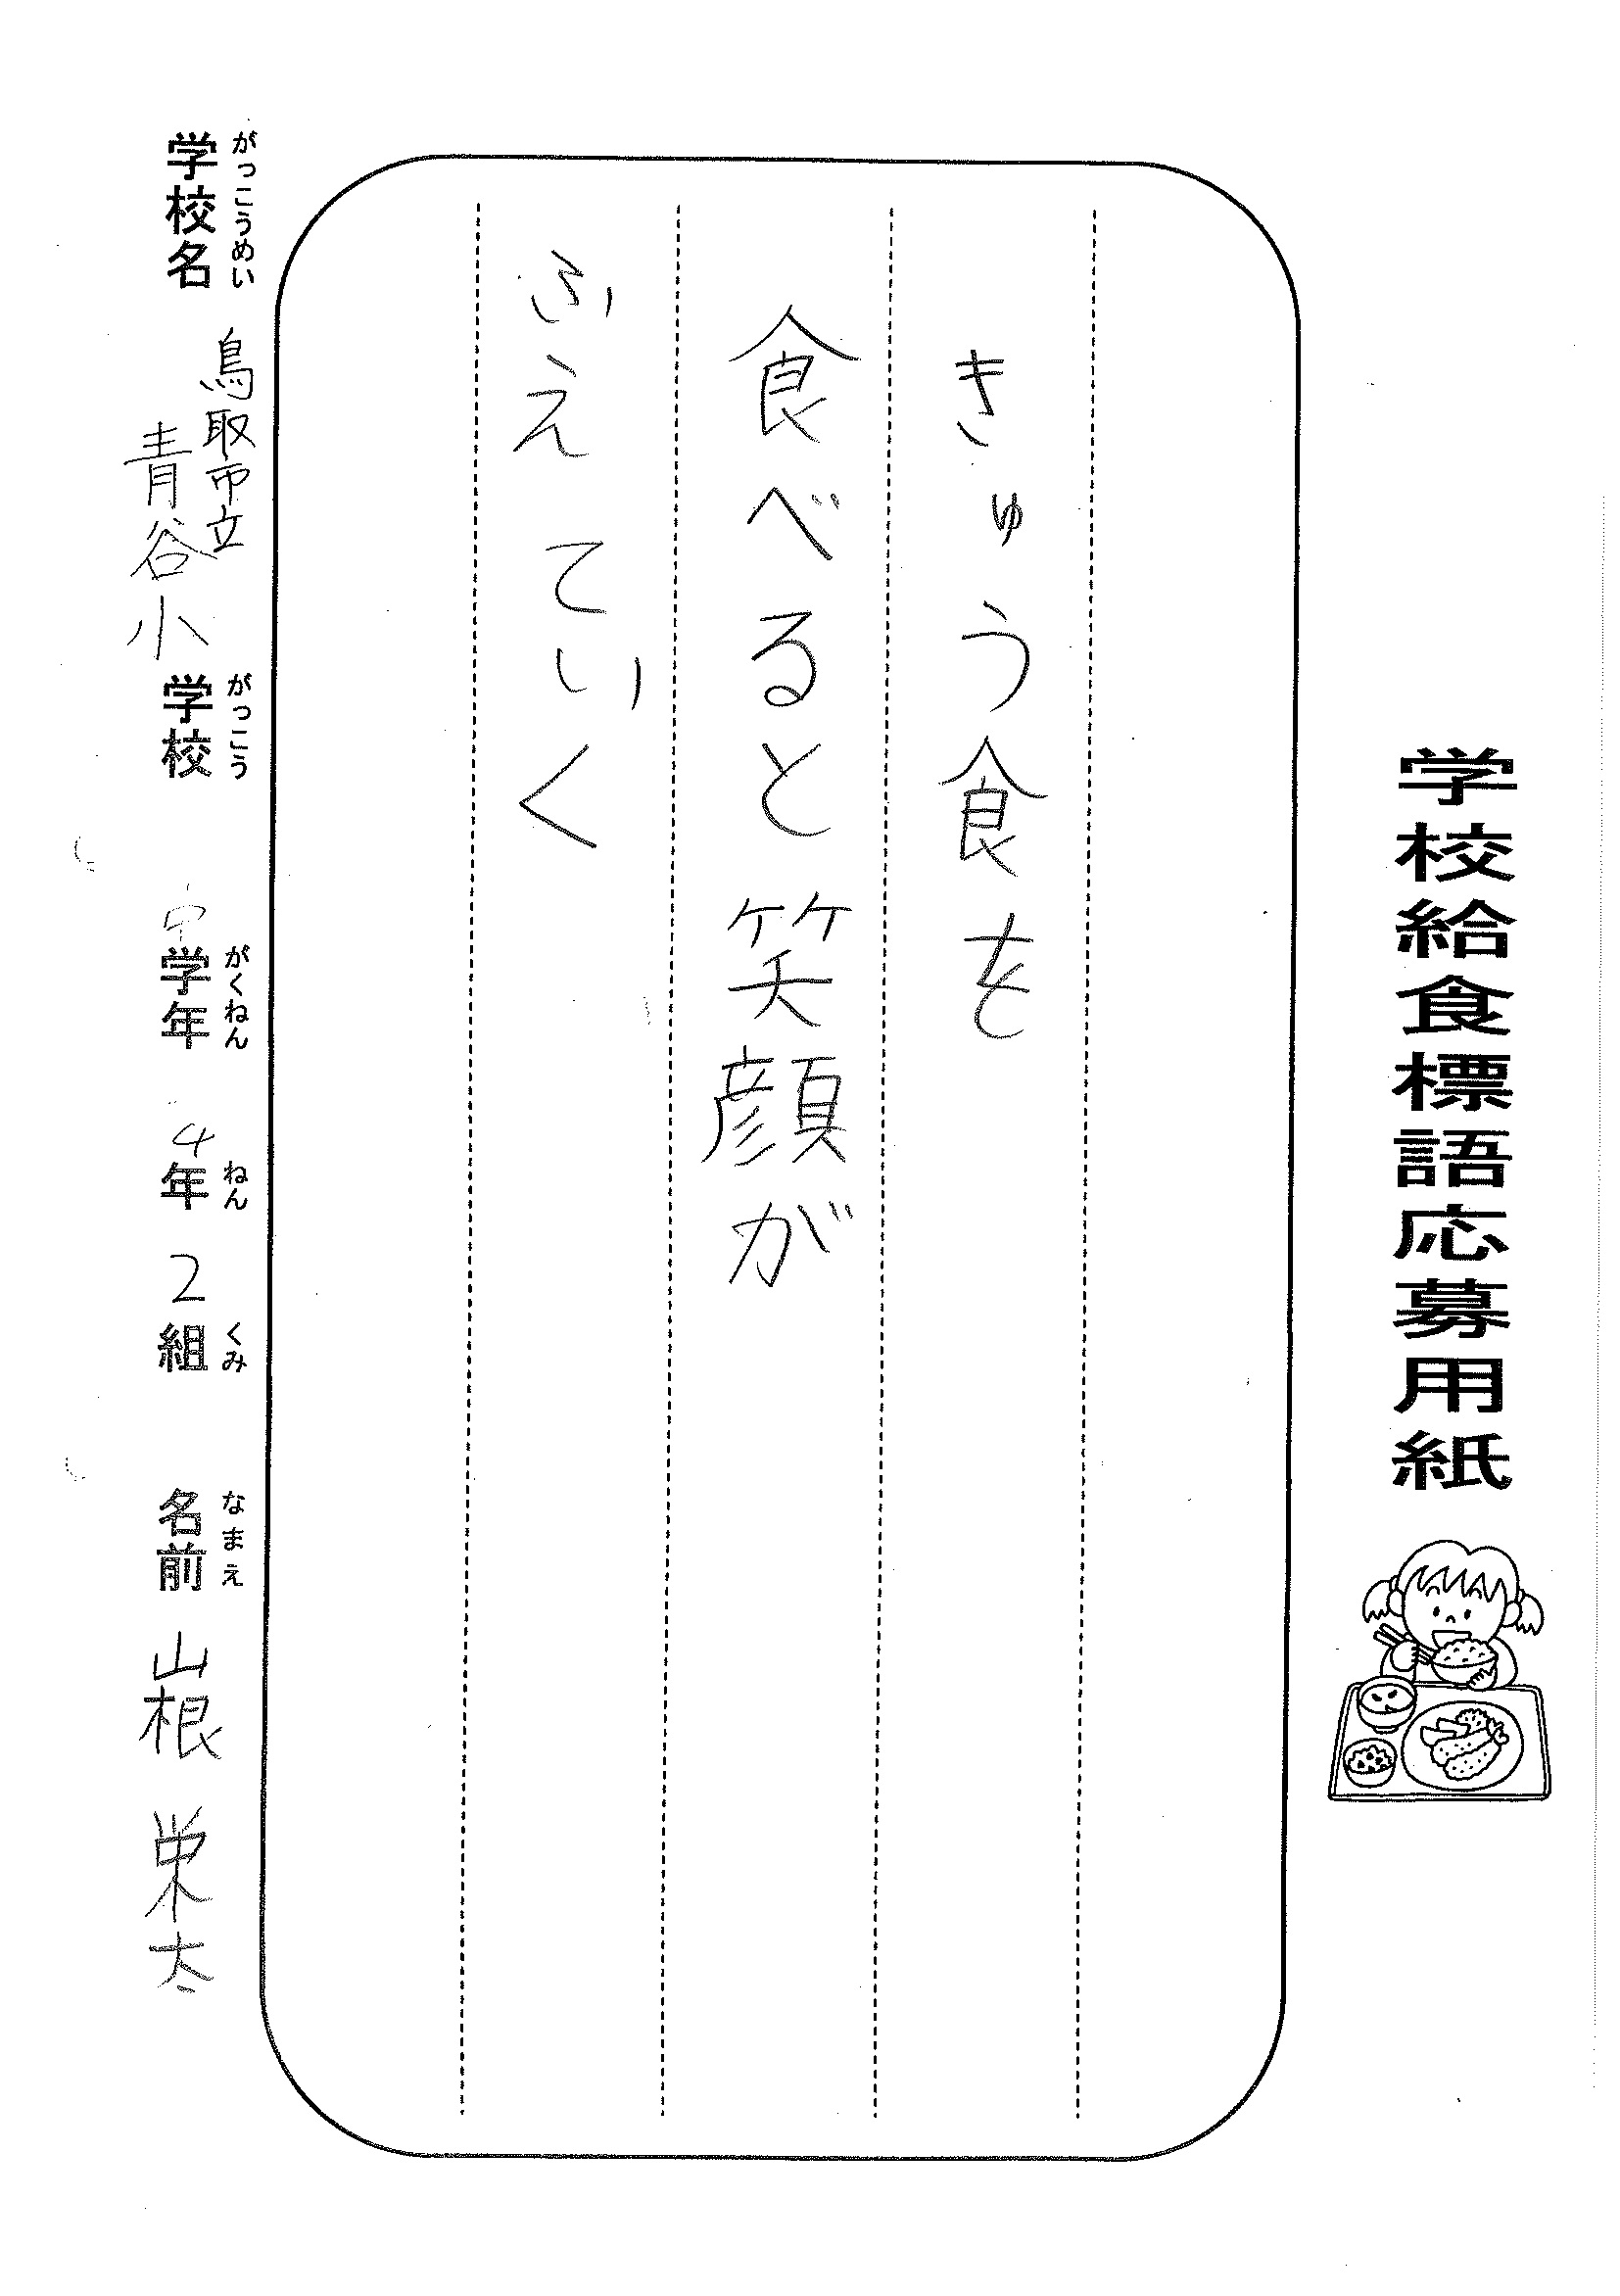 学校給食標語応募用紙
きゅう食を
食べると笑顔が
ふえていく
がっこうめい がっこう がくねん ねん くみ なまえ
学校名 鳥取市立青谷小学校 中学年 4年 2組 名前 山根 栄太